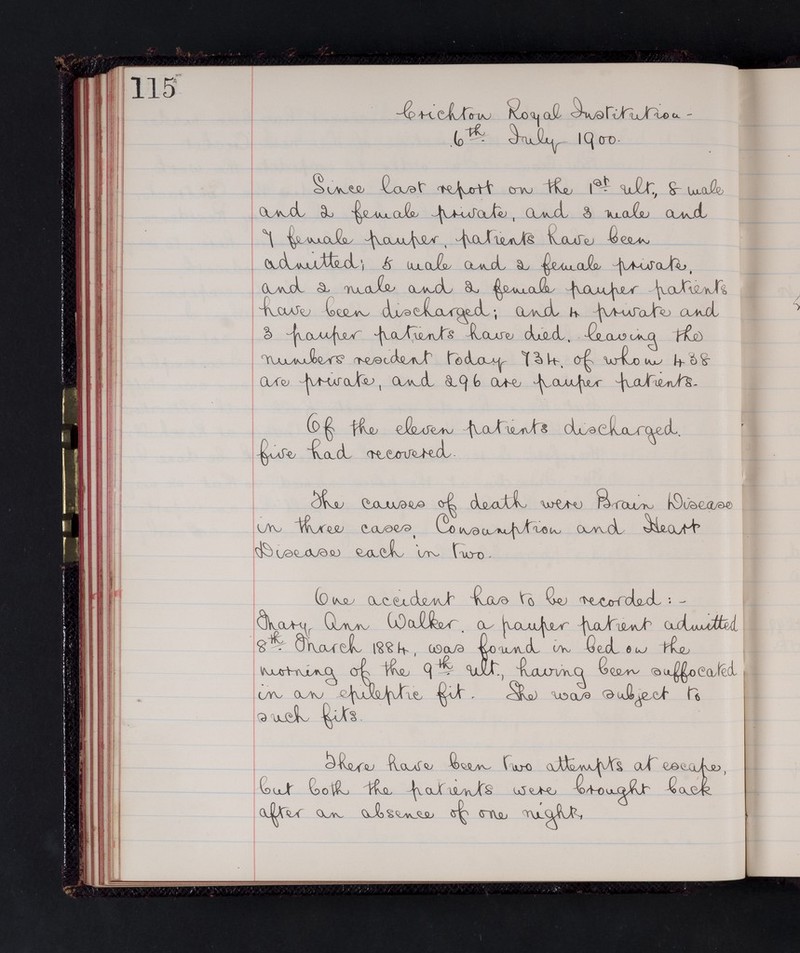 115
Crichton Royal Institution -
6th July 1900.
Since last report on the 1st ult., 8 male
and 2 female private, and 3 male and
7 female pauper, patients have been
admitted; 5 male and 2 female private,
and 2 male and 2 female pauper patients
have been discharged; and 4 private and
3 pauper patients have died, leaving the
numbers resident today 734, of whom 438
are private, and 296 are pauper patients.
Of the eleven patients discharged,
five had recovered.
The causes of death were Brain Disease
in three cases, Consumption and Heart
Disease each in two.
One accident has to be recorded : -
Mary Ann Walker, a pauper patient admitted
8th March 1884, was found in bed on the
morning of the 9th ult., having been suffocated
in an epileptic fit. She was subject to
such fits.
There have been two attempts at escape,
but both the patients were brought back
after an absence of one night.